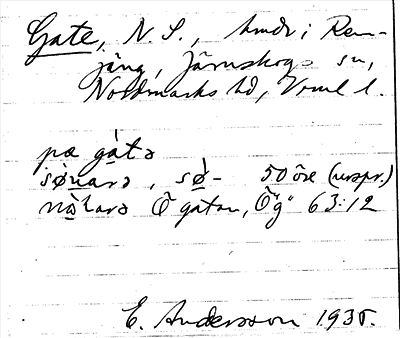 Gate, N. S., hmdr i Ren-
jäng, Järnskogs sn,
Nordmarks hd, Vrml l.
pæ gàtə
sø̀narə, sø̀- 50 öre (urspr.)
nòlarə Ö gatan, "Ög" 63:12
E. Andersson 1935.